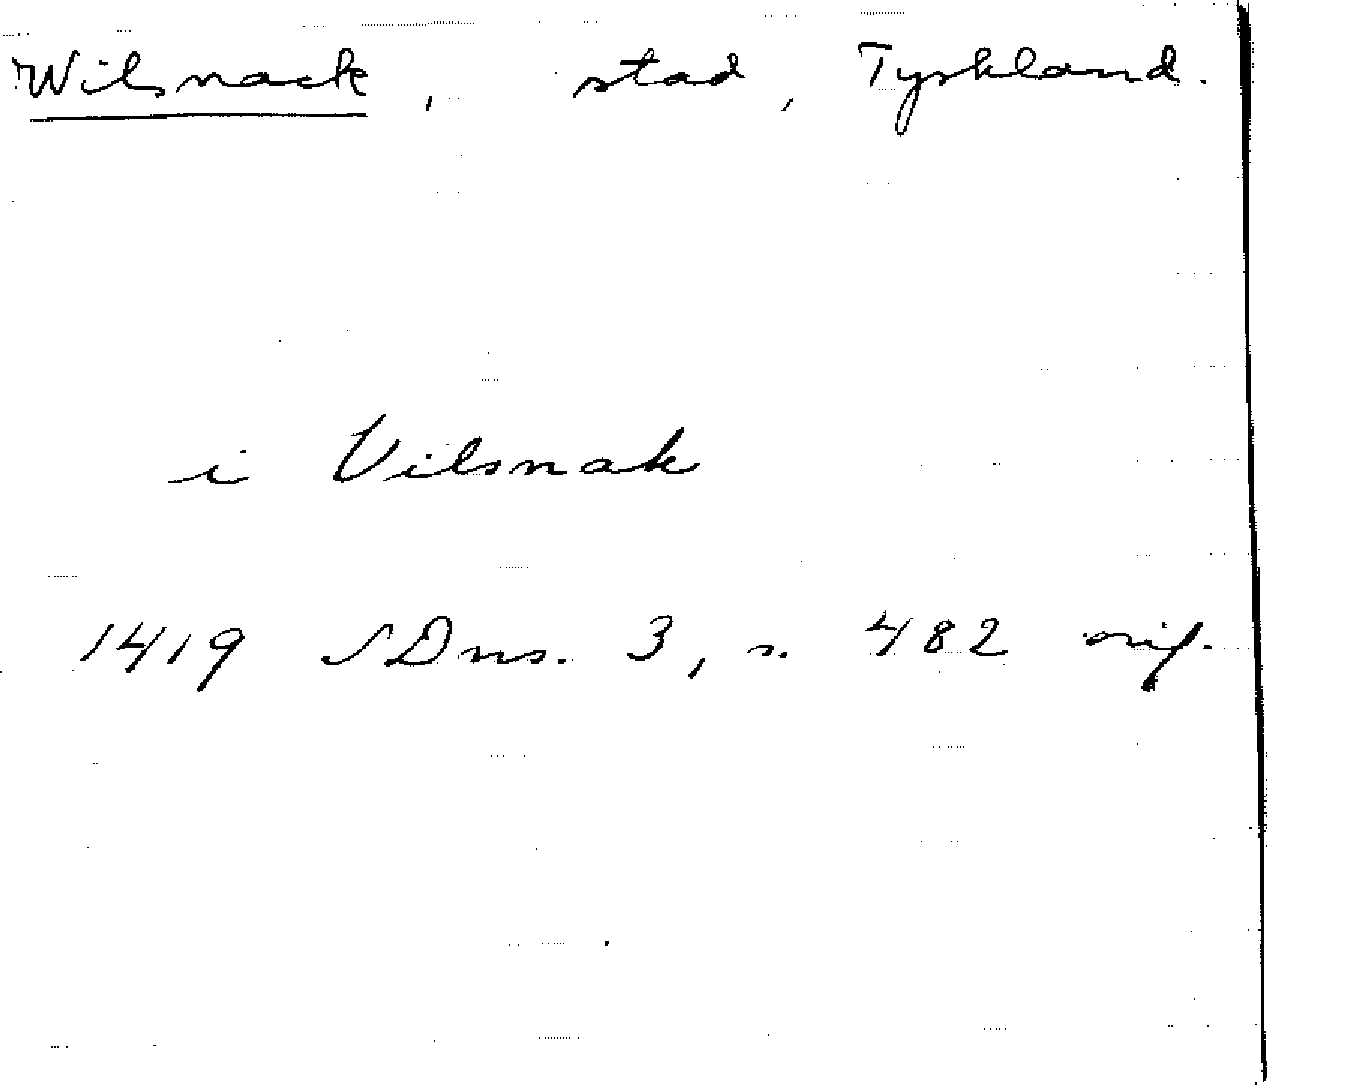 Wilsnack, stad, Tyskland.
i Vilsnak
1419 SDns. 3, s. 482 orig.